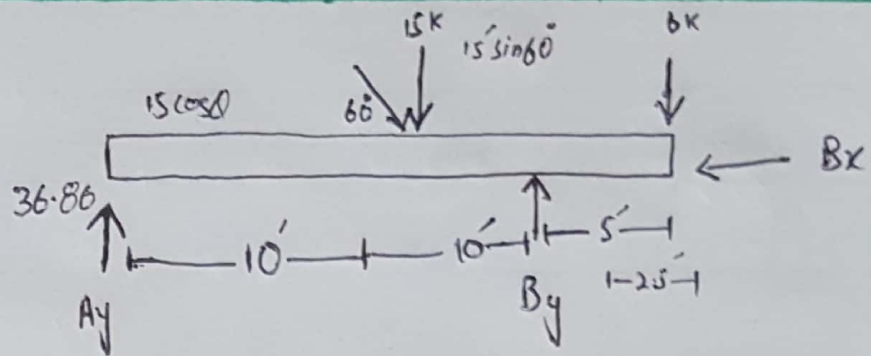 15K 15'sin60° 6K
15cosθ 60°
Bx
36.86
10' 10' 5'
2.5'
Ay By